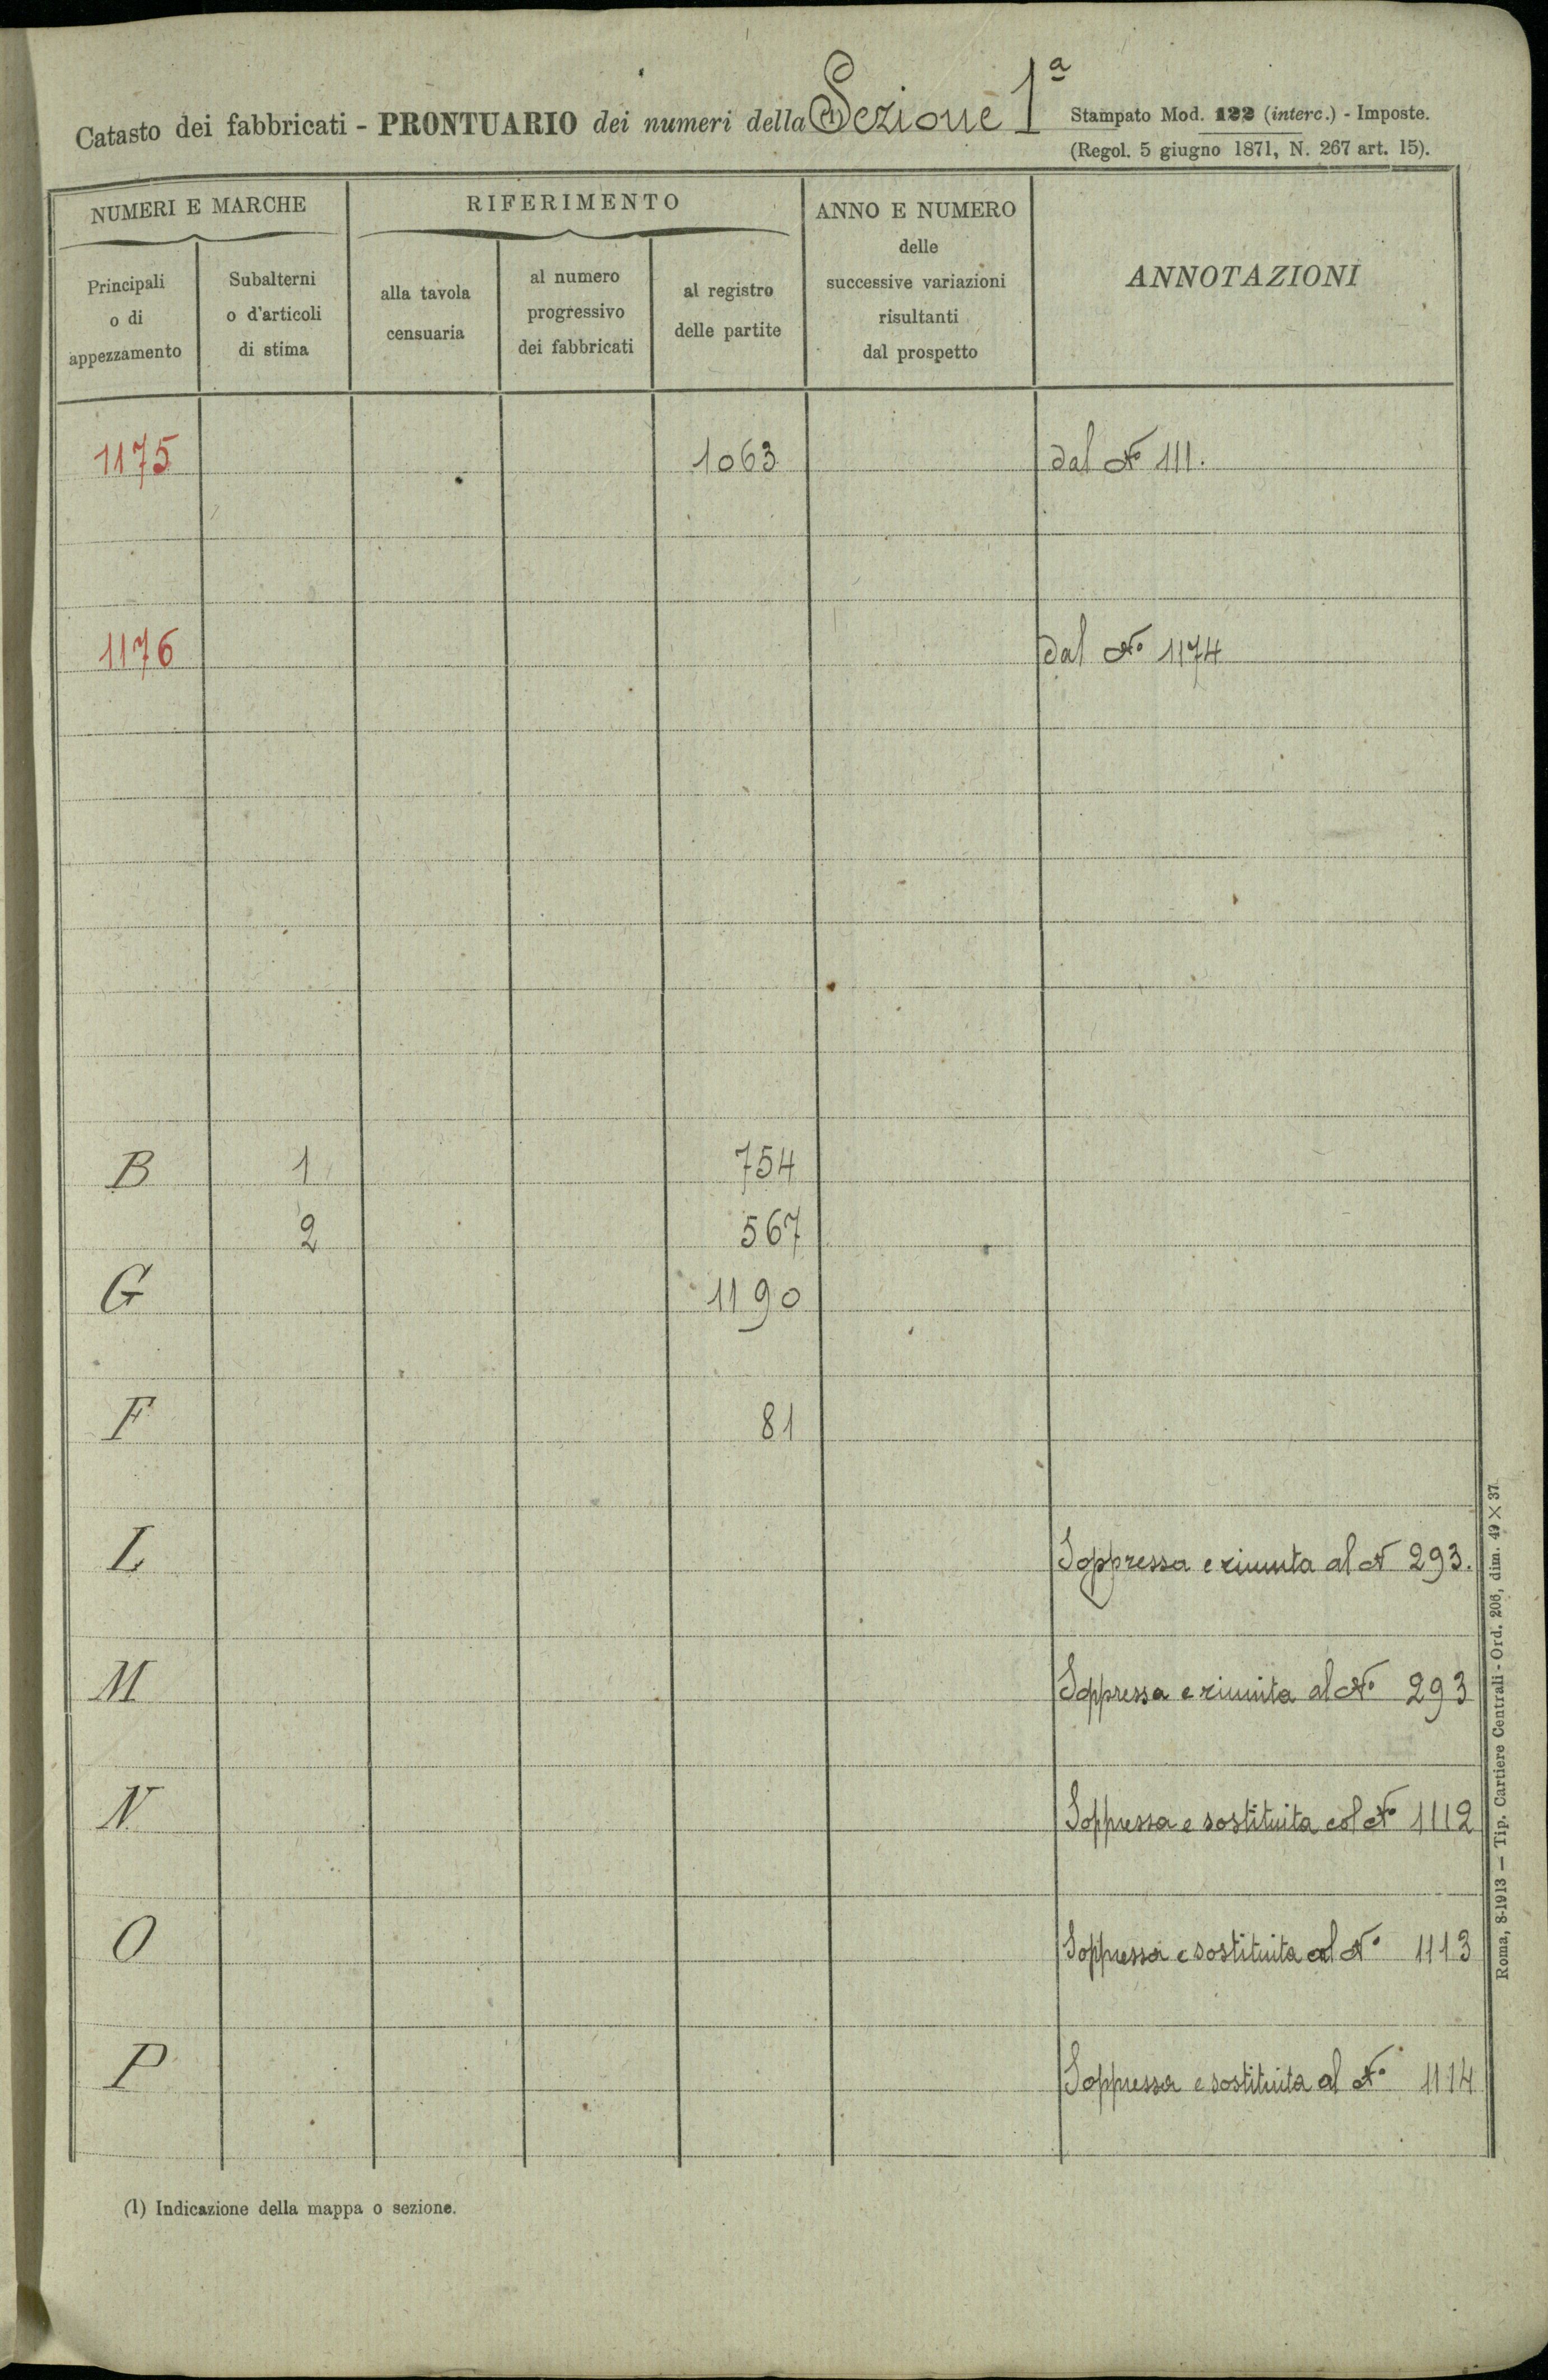 Catasto dei fabbricati - PRONTUARIO dei numeri della (1) Sezione 1ª
Stampato Mod. 122 (interc.) - Imposte.
(Regol. 5 giugno 1871, N. 267 art. 15).
NUMERI E MARCHE
RIFERIMENTO
ANNO E NUMERO
delle
successive variazioni
risultanti
dal prospetto
ANNOTAZIONI
Principali
o di
appezzamento
Subalterni
o d'articoli
di stima
alla tavola
censuaria
al numero
progressivo
dei fabbricati
al registro
delle partite
1175 1063 dal Nº 111.
1176 dal Nº 1174
B 1 754
2 567
G 1190
F 81
L Soppressa e riunita al N 293.
M Soppressa e riunita al Nº 293
N Soppressa e sostituita col Nº 1112
O Soppressa e sostituita al Nº 1113
P Soppressa e sostituita al Nº 1114
(1) Indicazione della mappa o sezione.
Roma, 8-1913 — Tip. Cartiere Centrali - Ord. 206, dim. 49 × 37.